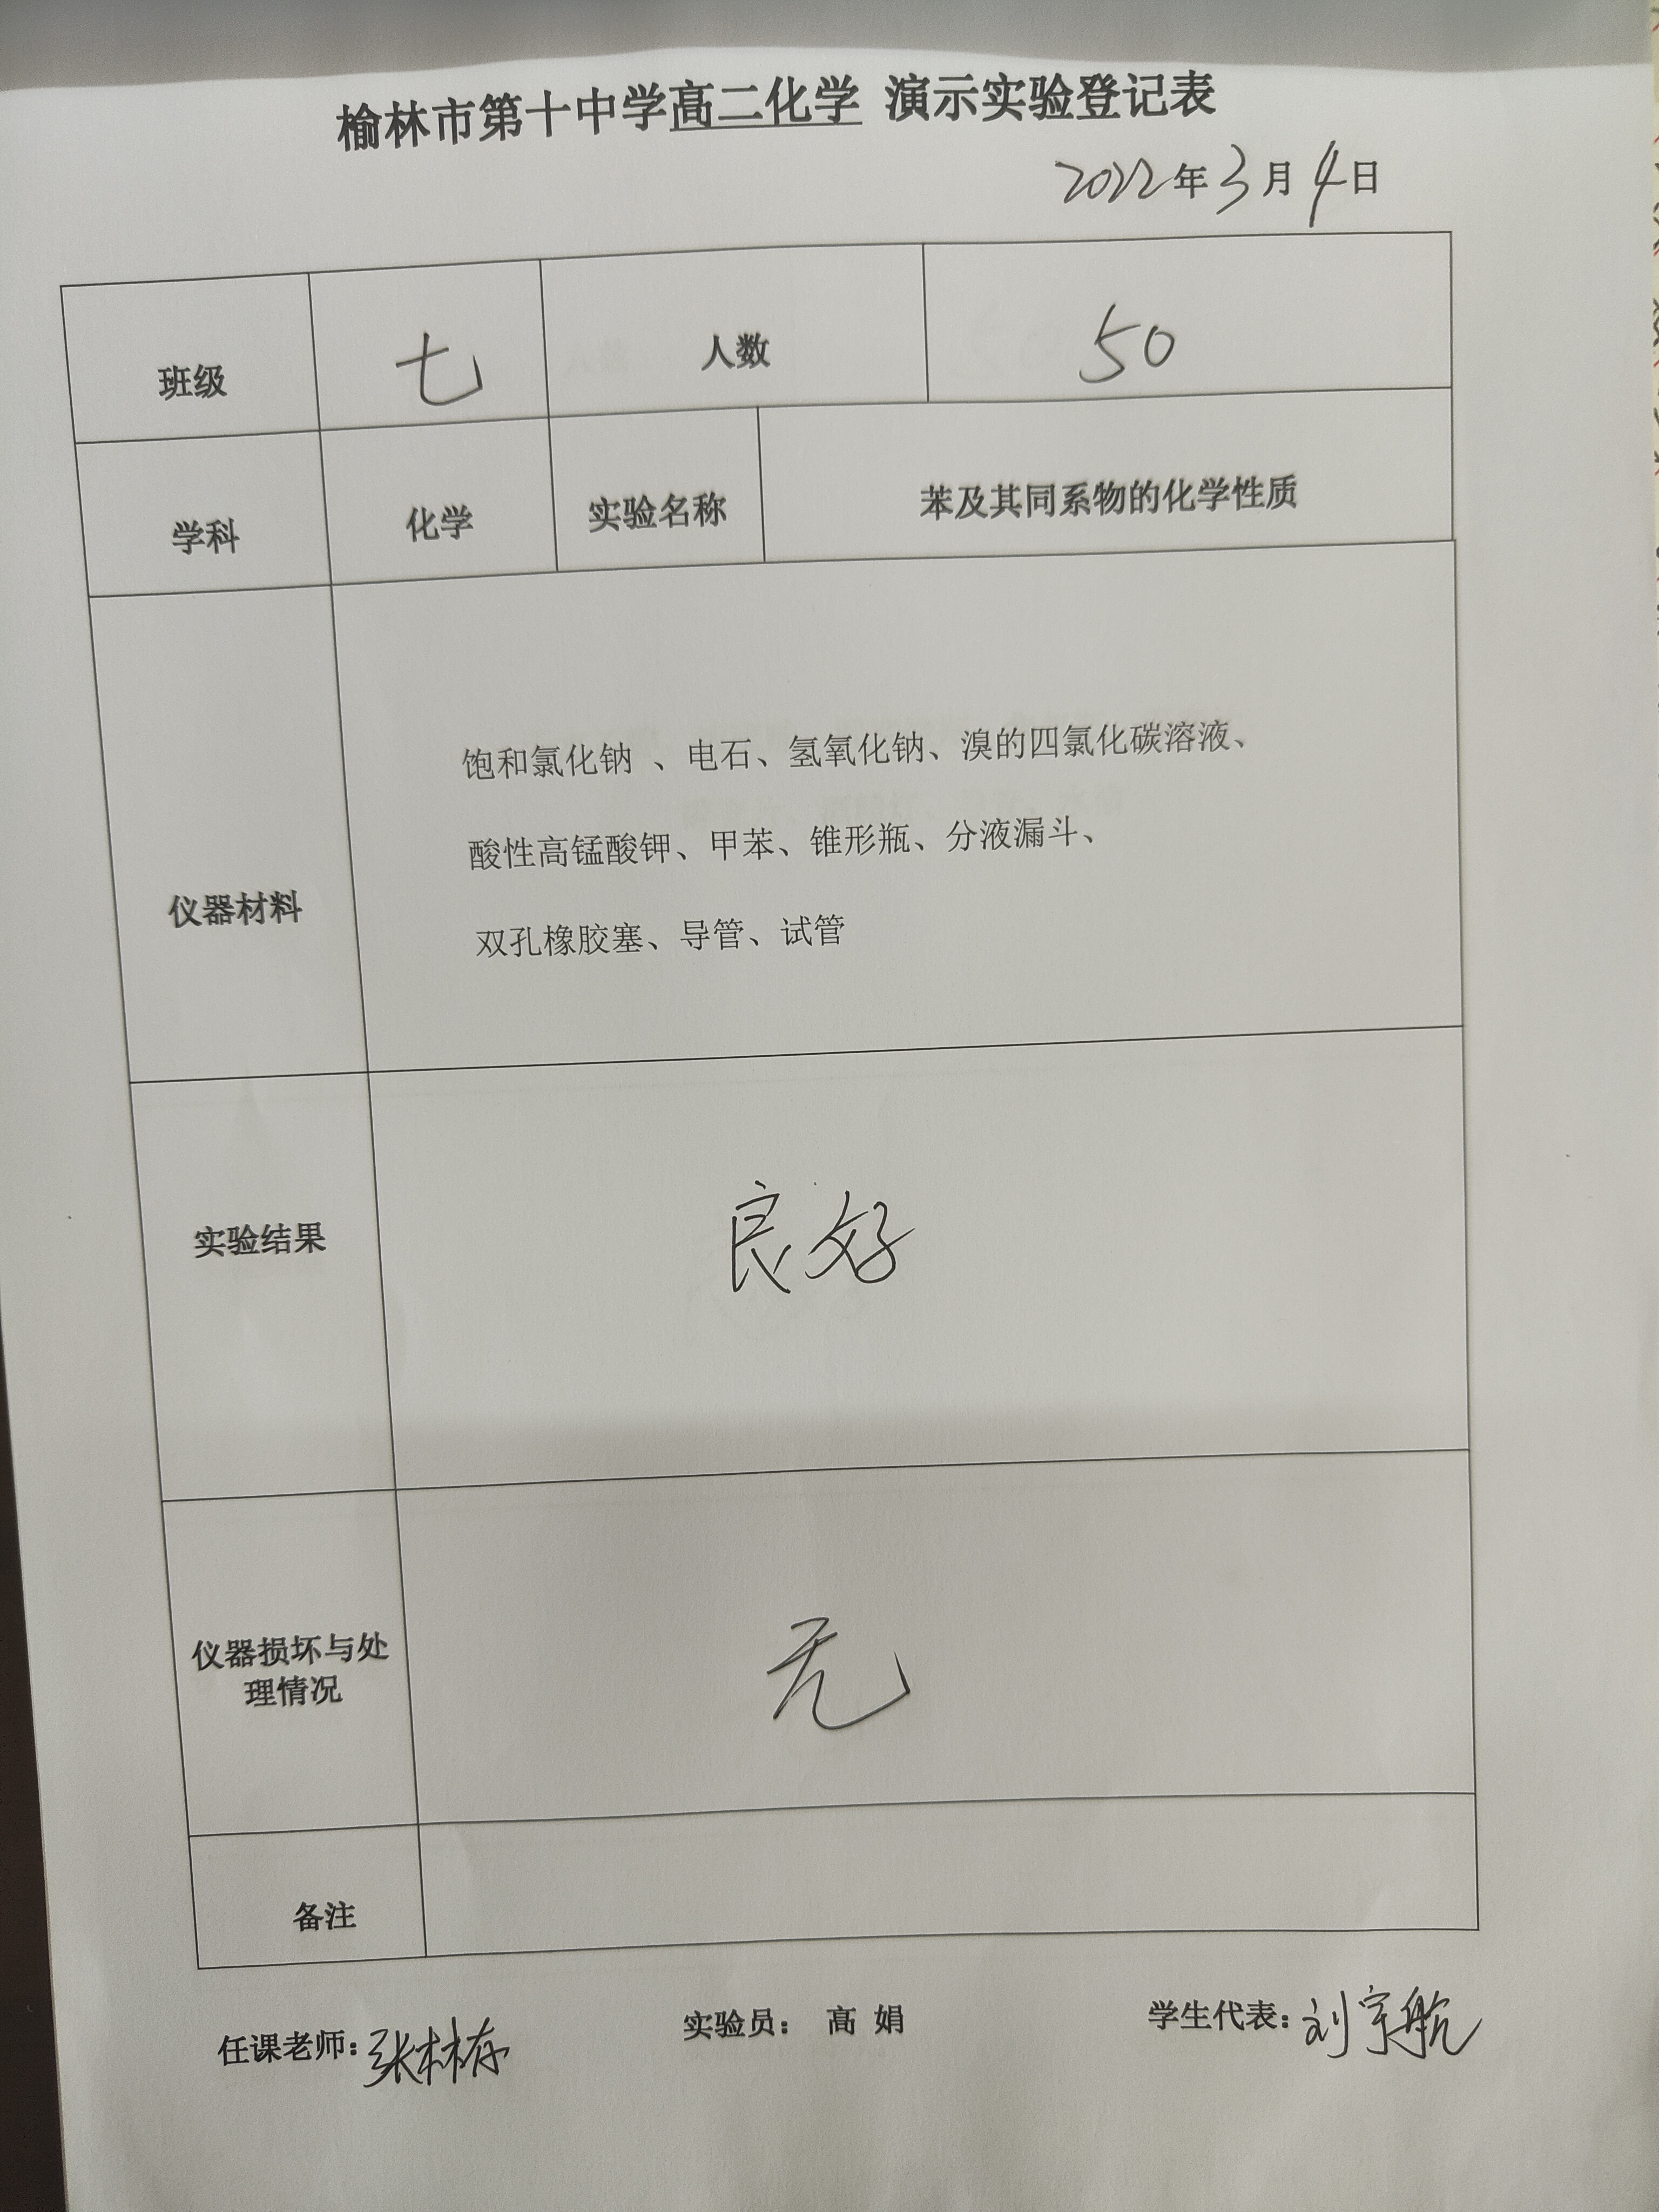 榆林市第十中学高二化学 演示实验登记表
2022年3月4日
班级 七 人数 50
学科 化学 实验名称 苯及其同系物的化学性质
饱和氯化钠 、电石、氢氧化钠、溴的四氯化碳溶液、
酸性高锰酸钾、甲苯、锥形瓶、分液漏斗、
仪器材料
双孔橡胶塞、导管、试管
实验结果 良好
仪器损坏与处
理情况
无
备注
任课老师:张林存 实验员: 高 娟 学生代表:刘宇航